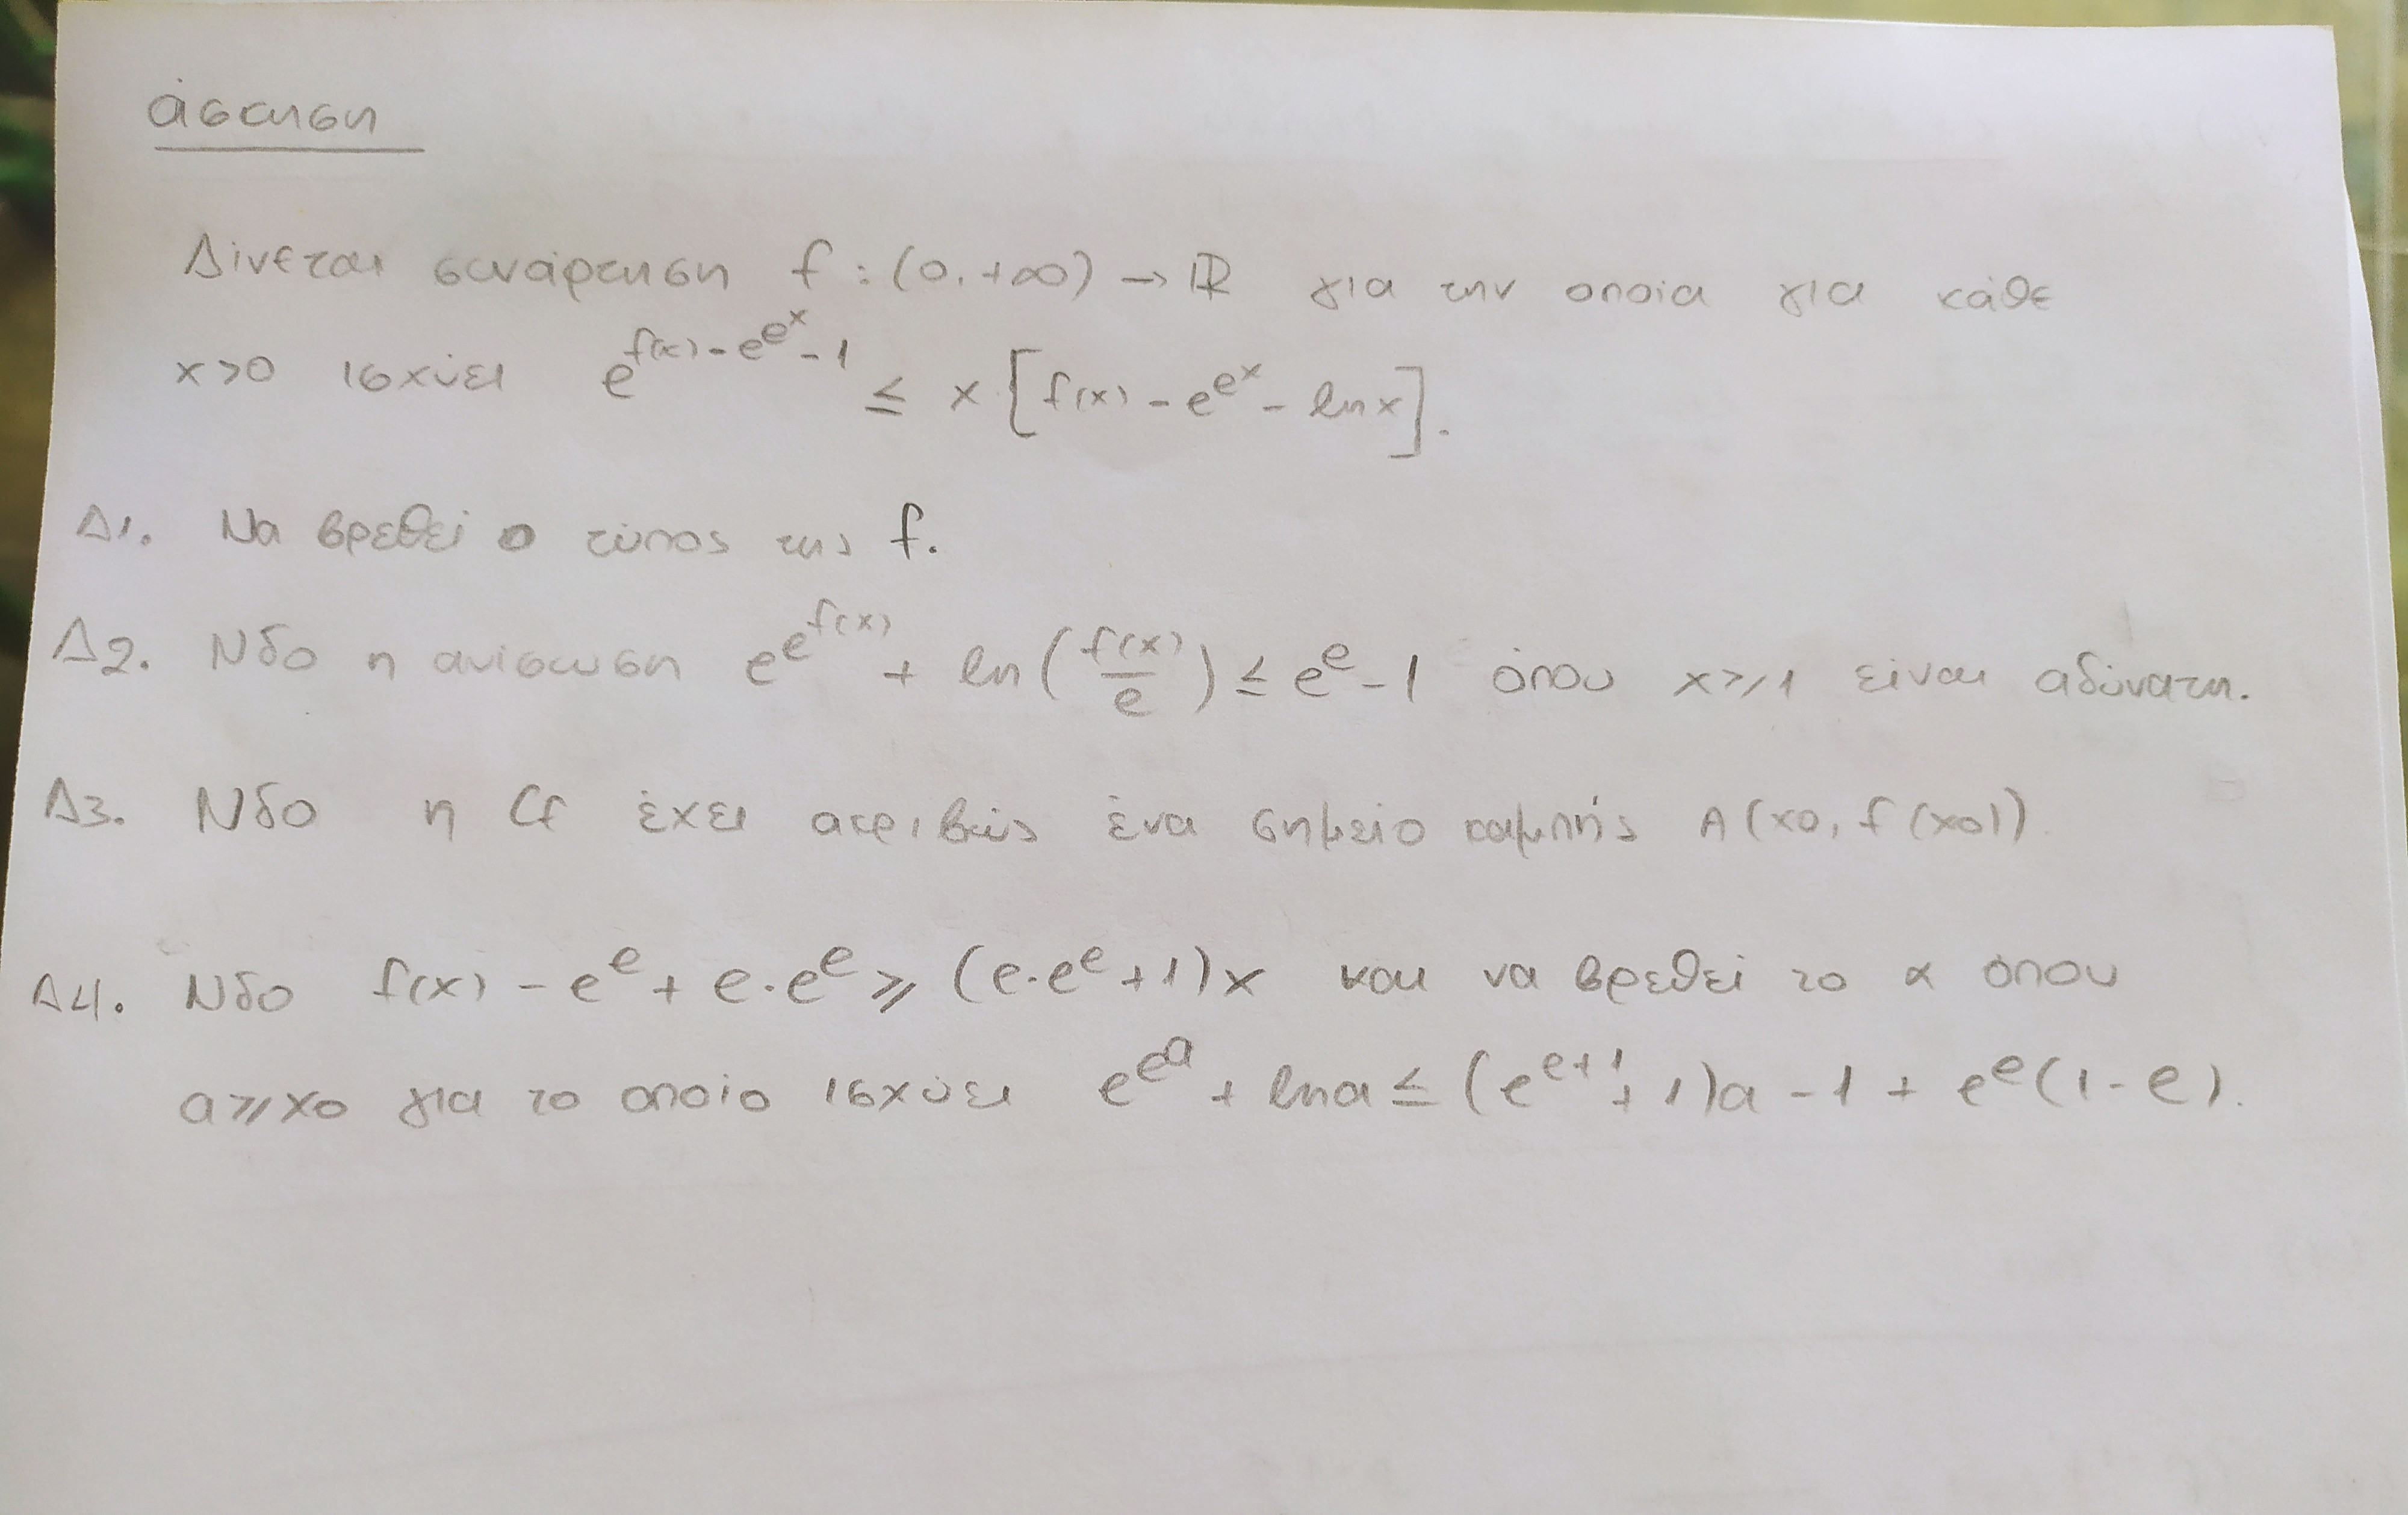 άσκηση
Δίνεται συνάρτηση f : (0, +∞) → ℝ για την οποία για κάθε
x>0 ισχύει e^{f(x) - e^{e^x} - 1} ≤ x [f(x) - e^{e^x} - lnx].
Δ1. Να βρεθεί ο τύπος της f.
Δ2. Νδο η ανίσωση e^{e^{f(x)}} + ln(f(x)/e) ≤ e^e - 1 όπου x⩾1 είναι αδύνατη.
Δ3. Νδο η Cf έχει ακριβώς ένα σημείο καμπής A(x0, f(x0))
Δ4. Νδο f(x) - e^e + e·e^e ⩾ (e·e^e + 1)x και να βρεθεί το α όπου
α⩾x0 για το οποίο ισχύει e^{e^α} + lnα ≤ (e^{e+1} + 1)α - 1 + e^e(1-e).